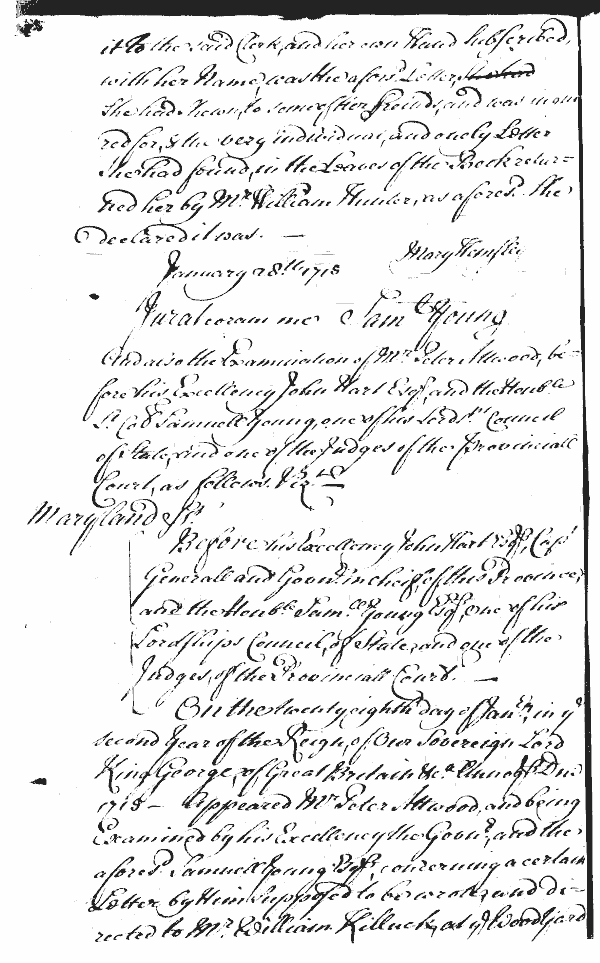 it to the said Clerk, and her own Hand subscribed,
with her Name, was the afors.d Letter, she had
she had shewn, to some of her friends, and was inqui
red for, & the very individual, and onely Letter
she had found, in the Leaves of the Book retur=
ned her by M.r William Hunter, as afores.d She
declared it was. —
January 28.th 1718 Mary Hemsley
Jurat coram me Sam.ll Young
And also the Examination of M.r Peter Attwood, be=
fore his Excellency John Hart Esq.r and the Hon.ble
L.t Col.o Samuell Young, one of his Lords.ps Council
of State, and one of the Judges of the Provinciall
Court, as follows. Viz.t —
Maryland Ss.t
Before his Excellency John Hart Esq.r, Cap.t
Generall and Gov.r in cheif, of this Province,
and the Hon.ble Sam.ll Young Esq.r, One of his
Lordships Council, of State, and one of the
Judges, of the Provinciall Court. —
On the twenty eighth day of Jan.ry, in y.e
second Year of the Reign, of Our Sovereign Lord
King George, of Great Britain &c.a Annoq.e Dni
1718 — Appeared M.r Peter Attwood, and being
Examined by his Excellency the Gov.r, and the
afores.d Samuell Young Esq.r, concerning a certain
Letter, by Him supposed to be wrote, and di=
rected to M.r William Killuck, at y.e Woodyard